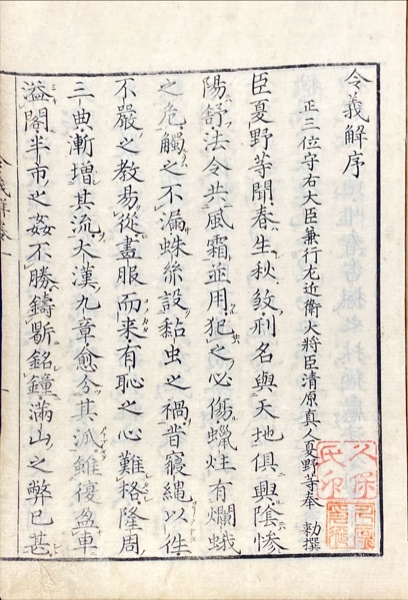 令義解序
正三位守右大臣兼行左近衛大將臣清原真人夏野等奉 勅撰
臣夏野等聞春生秋殺刑名與天地俱興陰慘
陽舒法令共風霜並用犯之必傷蠟炷有爛蛾
之危觸之不漏蛛絲設黏虫之禍昔寢繩以往
不嚴之教易從畫服而来有恥之心難格隆周
三典漸增其流大漢九章愈分其派雖復盈車
溢閣半市之姦不勝鑄鼎銘鐘滿山之弊已甚
久保
氏印